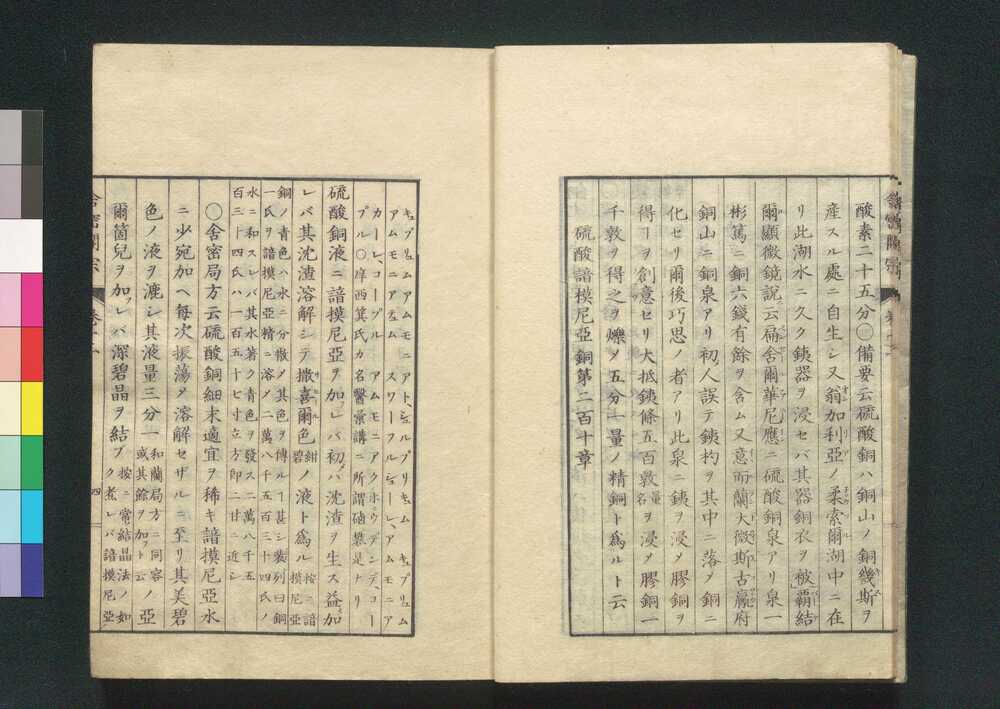 酸素二十五分〇備要云硫酸銅ハ銅山ノ銅幾斯ヲ
産スル處ニ自生シ又翁加利亞ノ柔索爾湖中ニ在
リ此湖水ニ久ク銕器ヲ浸セバ其器銅衣ヲ被覇結
爾顯微鏡說云扁舍爾華尼應ニ硫酸銅泉アリ泉一
彬篤ニ銅六錢有餘ヲ含ム又意而蘭大
銅山ニ銅泉アリ初人誤テ銕杓ヲ其中ニ落メ銅ニ
化セリ爾後巧思ノ者アリ此泉ニ銕ヲ浸メ膠銅ヲ
得ヿヲ創意セリ大抵銕條五百敦量名ヲ浸メ膠銅一
千敦ヲ得之ヲ爍メ五分一量ノ精銅ト爲ルト云
硫酸諳模尼亞銅第二百十章
キュプリュムアムモニアト、シュルプリキュム キュプリュム
アムモニアキュム スワーフルシューレ、アムモニア
カーレ、コープル アムモニアクホウデンデコー
プル〇庠西箕氏カ名醫彙講ニ所謂礠礬是ナリ
硫酸銅液ニ諳模尼亞ヲ加レバ初メ沈渣ヲ生ス益加
レバ其沈渣溶解シテ撒喜爾色紺碧ノ液ト爲ル按ニ諳模尼亞
銅ノ青色ハ水ニ分散メ其色ヲ傳ルヿ甚シ裴列曰銅
一氏ヲ諳模尼亞精ニ溶メ二萬八千五百三十四氏ノ
水ニ和スレバ其水著ク青色ヲ發ス二萬八千五
百三十四氏ハ一百五十七寸立方即二廿ニ近シ
〇舍密局方云硫酸銅細末適宜ヲ稀キ諳模尼亞水
ニ少宛加ヘ每次振蕩メ溶解セザルニ至リ其美碧
色ノ液ヲ漉シ其液量三分一和蘭局方ニ同容或其餘ヲ加フト云ノ亞
爾箇兒ヲ加フレバ深碧晶ヲ結ブ按ニ常結晶法ノ如ク煮レバ諳摸尼亞
舍密開宗
四